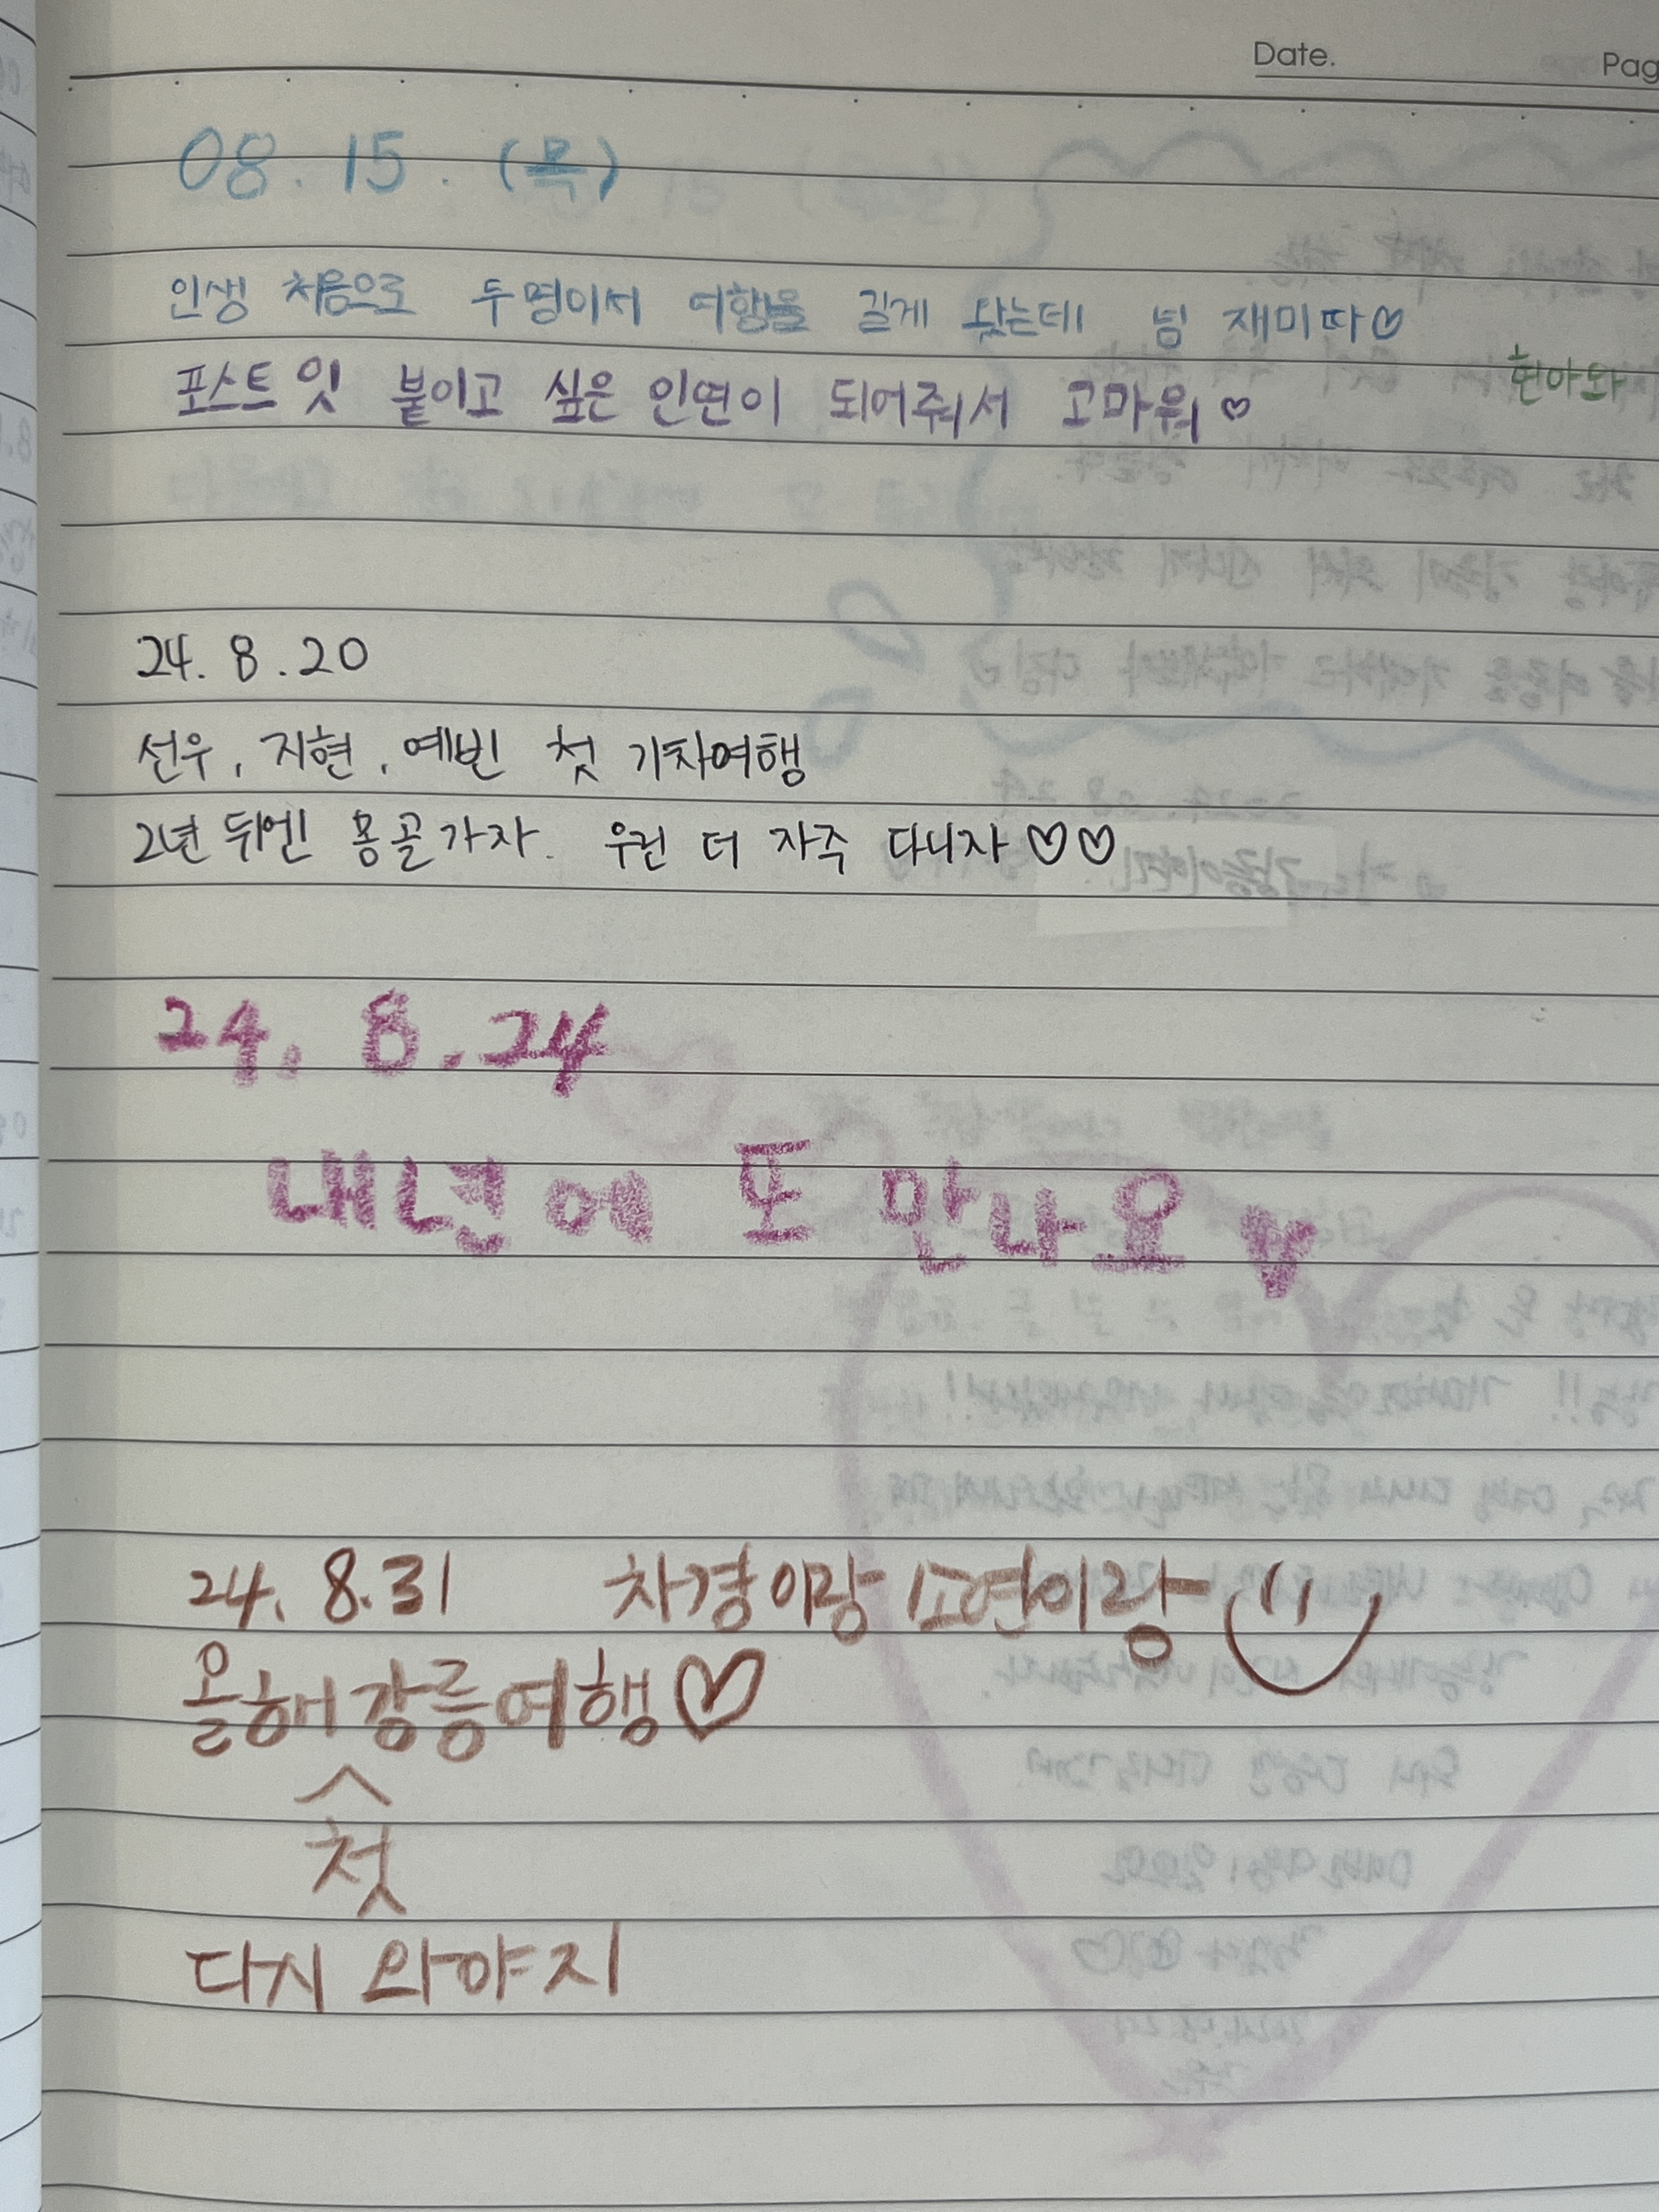 Date.
Pag
08. 15. (목)
인생 처음으로 두명이서 여행을 길게 왔는데 넘 재미따♡
포스트잇 붙이고 싶은 인연이 되어줘서 고마워♡
24. 8. 20
선우, 지현, 예빈 첫 기차여행
2년 뒤엔 몽골가자. 우린 더 자주 다니자♡♡
24. 8. 24
내년에 또 만나요♥
24. 8. 31 차경이랑 소연이랑
올해 강릉여행♡
첫
다시 와야지